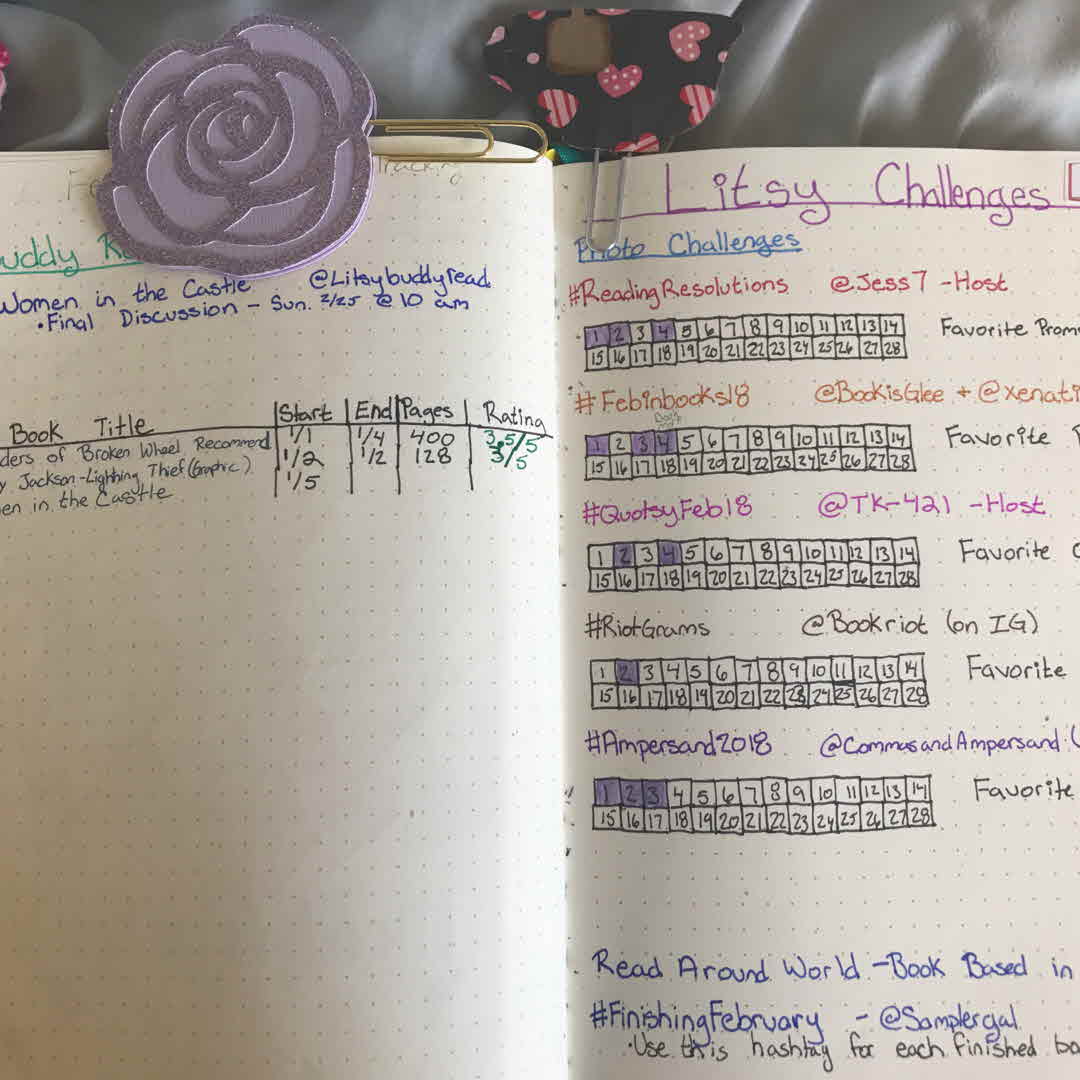 Tracking
uddy
Women in the Castle @Litsybuddyread
• Final Discussion - Sun. 2/25 @ 10 am
Book Title Start End Pages Rating
ders of Broken Wheel Recommend 1/1 1/4 400 3.5/5
y Jackson-Lightning Thief (Graphic) 1/2 1/2 128 3/5
en in the Castle 1/5
Litsy Challenges
Photo Challenges
#ReadingResolutions @Jess7 - Host
1 2 3 4 5 6 7 8 9 10 11 12 13 14 Favorite Prom
15 16 17 18 19 20 21 22 23 24 25 26 27 28
#Febinbooks18 @BookisGlee + @Xenati
1 2 3 4 5 6 7 8 9 10 11 12 13 14 Favorite
15 16 17 18 19 20 21 22 23 24 25 26 27 28
#QuotsyFeb18 @TK-421 - Host
1 2 3 4 5 6 7 8 9 10 11 12 13 14 Favorite
15 16 17 18 19 20 21 22 23 24 25 26 27 28
#RiotGrams @Bookriot (on IG)
1 2 3 4 5 6 7 8 9 10 11 12 13 14 Favorite
15 16 17 18 19 20 21 22 23 24 25 26 27 28
#Ampersand2018 @CommasandAmpersand
1 2 3 4 5 6 7 8 9 10 11 12 13 14 Favorite
15 16 17 18 19 20 21 22 23 24 25 26 27 28
Read Around World - Book Based in
#FinishingFebruary - @Samplergal
• Use this hashtag for each finished bo